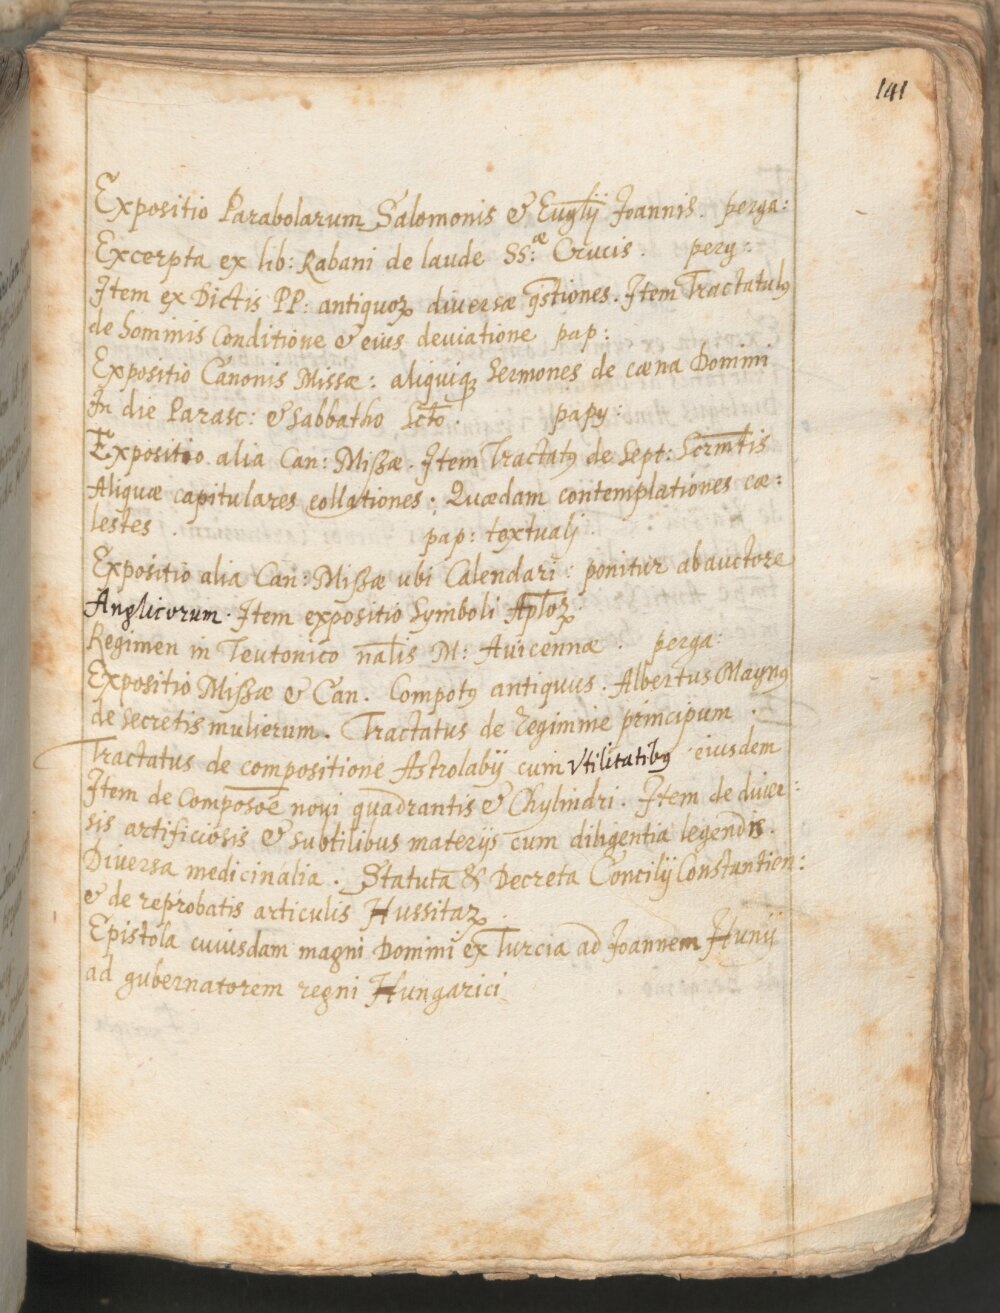 141
Expositio Parabolarum Salomonis & Euglij Joannis. perga:
Excerpta ex lib: Rabani de laude SS:æ Crucis. pery:
Item ex Dictis PP: antiquoꝝ diversæ q̄stiones. Item Tractatulꝰ
de hominis Conditione & eius deviatione pap:
Expositio Canonis Missæ: aliquiqꝫ Sermones de cæna Domini
In die Parasc: & Sabbatho Scto. papy:
Expositio alia Can: Missæ. Item Tractatꝰ de Sept: Scrm̄tis
Aliquæ capitulares collationes. Quædam contemplationes cæ:
lestes. pap: textualj
Expositio alia Can: Missæ ubi Calendari: ponitur ab auctore
Anglicorum. Item expositio Symboli Aploꝝ.
Regimen in Teutonico nālis M: Avicennæ. perga:
Expositio Missæ & Can. Compotꝰ antiquus. Albertus Magnꝰ
de secretis mulierum. Tractatus de regimine principum.
Tractatus de compositione Astrolabij cum Vtilitatibꝰ eiusdem
Item de Composōe novi quadrantis & Chylindri. Item de diver:
sis artificiosis & subtilibus materijs cum diligentia legendis.
Diversa medicinalia. Statuta & Decreta Concilij Constantien:
& de reprobatis articulis Hussitaꝝ.
Epistola cuiusdam magni Domini ex Turcia ad Joannem Hunij
ad gubernatorem regni Hungarici